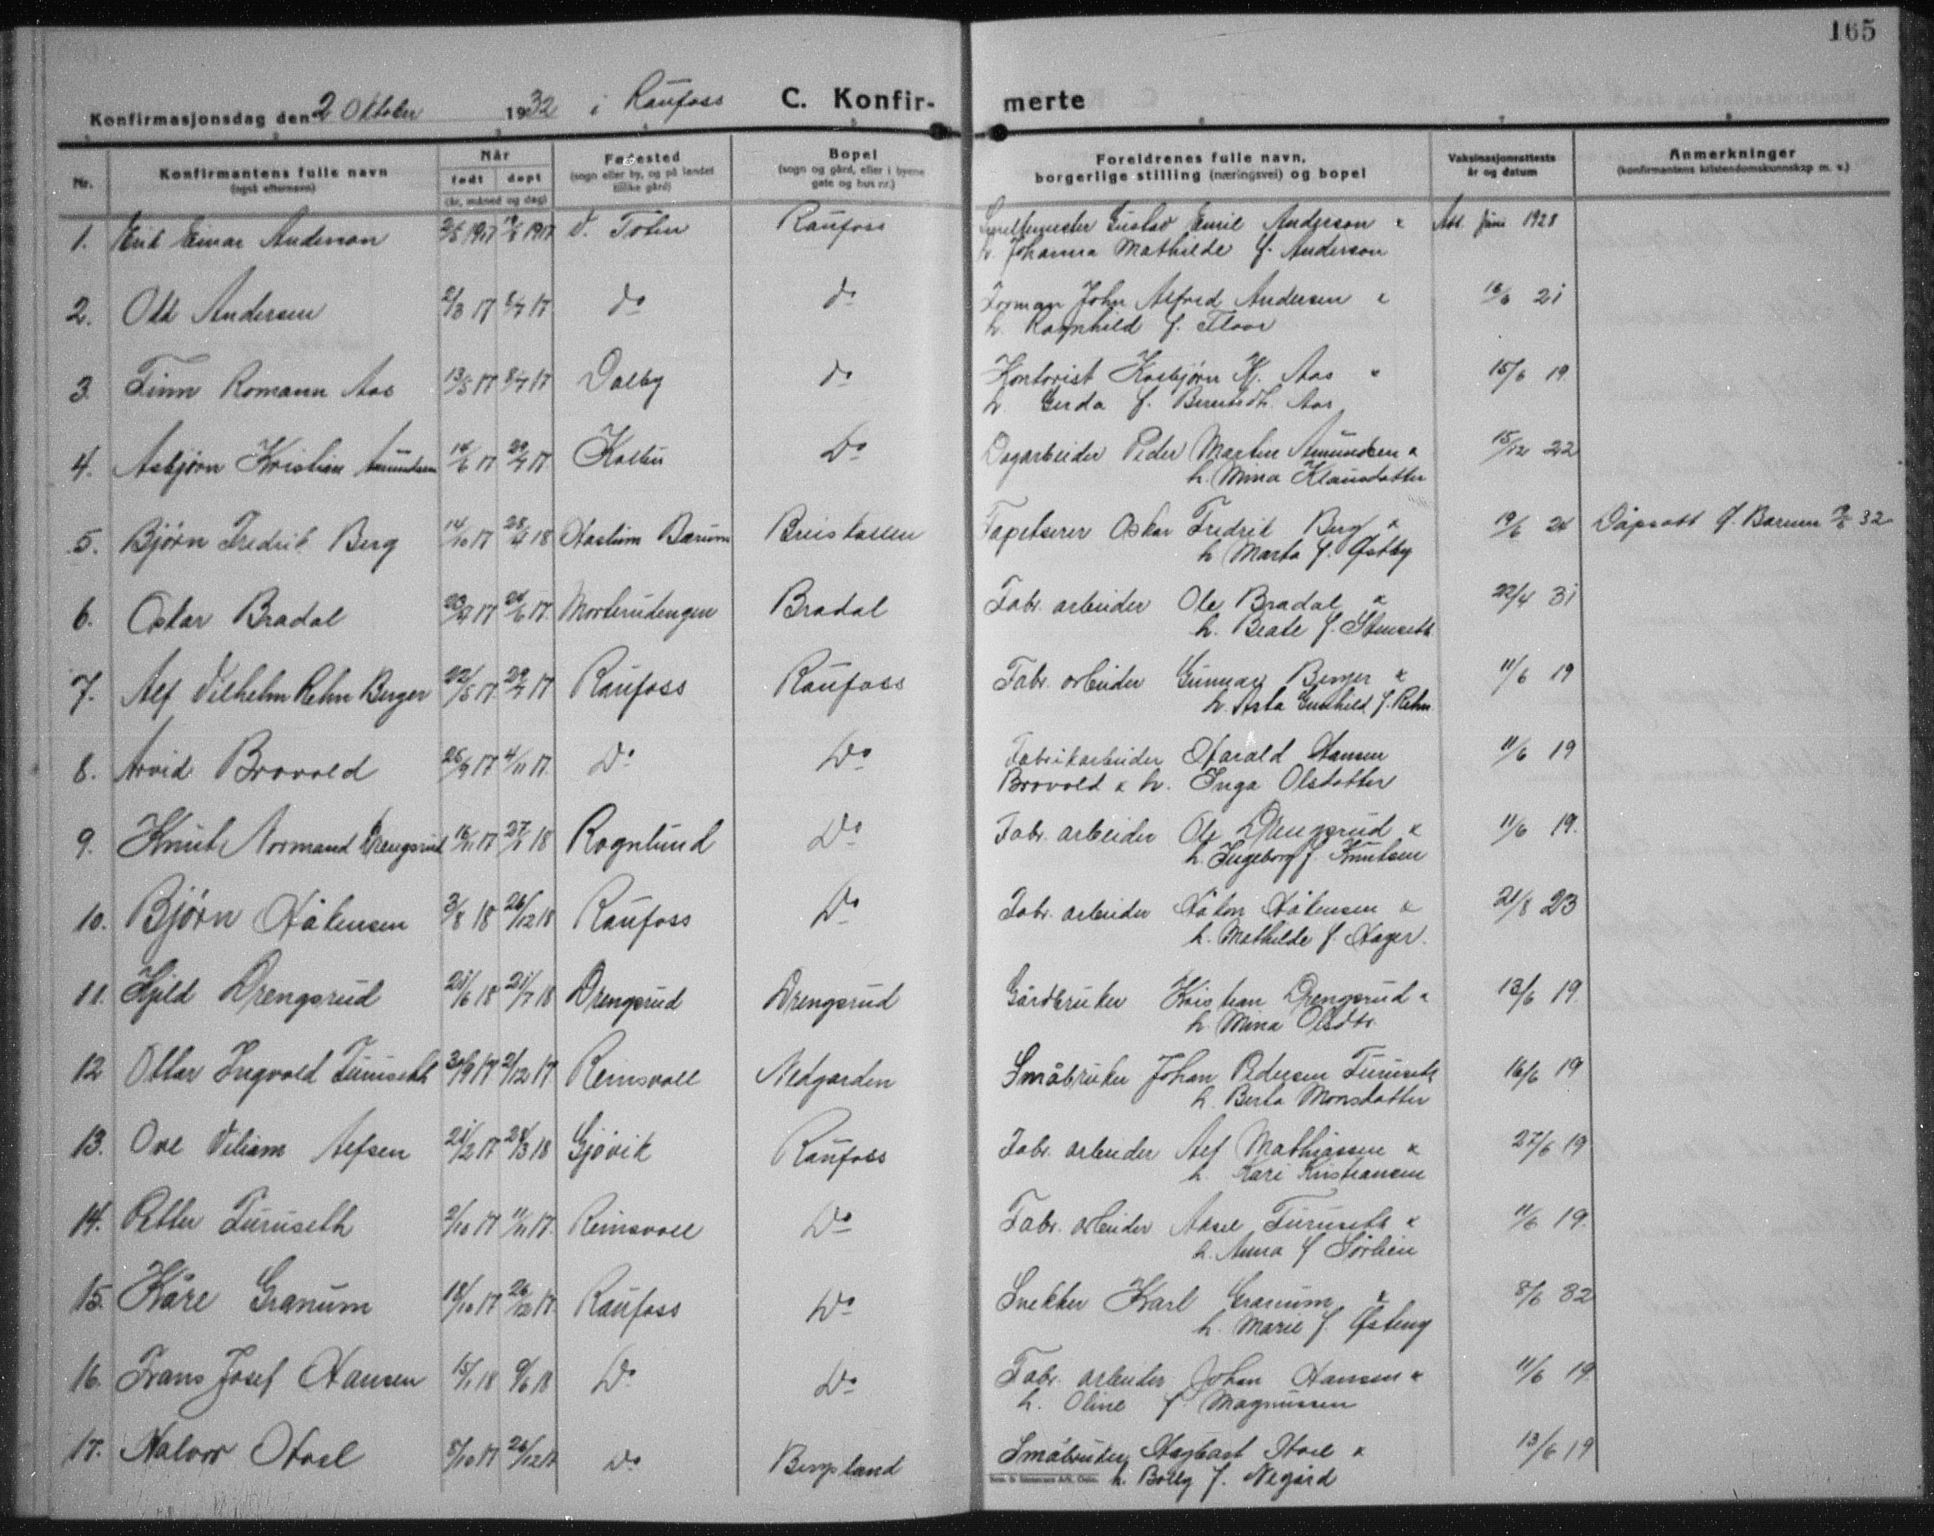 165
Konfirmasjonsdag den 2 Oktober 1932 i Raufoss C. Konfir- merte
Nr. Konfirmantens fulle navn (også efternavn) Når født døpt (år, måned og dag) Fødested (sogn eller by, og på landet tillike gård) Bopel (sogn og gård, eller i byene gate og hus nr.) Foreldrenes fulle navn, borgerlige stilling (næringsvei) og bopel Vaksinasjonsattests år og datum Anmerkninger (konfirmantens kristendomskunnskap m. v.)
1. Erik Einar Anderson 1917 1917 V. Toten Raufoss Gustav Emil Anderson x Att. Juni 1928
h. Johanna Mathilde f. Anderson
2. Odd Andersen 2/3 17 8/7 17 do do Forman John Alfred Andersen x 16/6 21
h. Ragnhild f. Floor
3. Finn Romann Aas 13/5 17 8/7 17 Dalby do Kontorist Aas x 15/6 19.
h. Gerda f. Aas
4. Asbjørn Kristian Amundsen 14/6 17 29/7 17 Kolbu Do Dagarbeider Peder Martin Amundsen x 15/12 22
h. Mina Klausdatter
5. Bjørn Fredrik Berg 14/10 17 28/4 18 Haslum Bærum Breiskallen Tapetserer Oskar Fredrik Berg x 19/6 24 Dåpsatt f. Bærum 32
h. Marta f. Østby
6. Oskar Bradal 17 24/6 17. Morterudengen Bradal Fabr. arbeider Ole Bradal x 22/4 31
h. Beate f. Stenseth
7. Alf Vilhelm Rehn Berger 22/5 17. 29/7 17 Raufoss Raufoss Fabr. arbeider Gunnar Berger x 11/6 19
h. Asta Gunhild f. Rehn.
8. Arvid Brovold 26/9 17 4/11 17. Do Do Fabrikarbeider Harald Hansen 11/6 19
Brovold x h. Inga Olsdatter
9. Knut Normand Drengsrud 16/11 17 27/ 18 Rognlund Do Fabr. arbeider Ole Drengsrud x 11/6 19.
h. Ingeborg f. Knutsen
10. Bjørn Håkensen 3/8 18 26/12 18 Raufoss Do Fabr. arbeider Håkon Håkensen x 21/8 23
h. Mathilde f. Hager.
11. Kjeld Drengsrud 21/6 18 21/7 18 Drengsrud Drengsrud Gårdbruker Kristian Drengsrud x 13/6 19.
h. Mina Olsdtr.
12 Ottar Ingvald Furuseth 30/9 17 2/12 17 Reinsvoll Nedgarden Småbruker Johan Pedersen Furuseth 16/6 19
h. Berta Monsdatter
13. Ove Viliam Alfsen 21/12 17 28/3 18 Gjøvik Raufoss Fabr. arbeider Alf Mathiassen x 27/6 19
h. Kari Kristiansen
14. Petter Furuseth 2/10 17 11/11 17. Reinsvoll Do Fabr. arbeider Furuseth x 11/6 19.
h. Anna f. Sørlien
15. Kåre Granum 18/10 17 26/12 17. Raufoss Do Snekker Karl Granum x 8/6 32
h. Marie f. Østeng
16. Frans Josef Hansen 15/1 18 9/6 18 Do Do Fabr. arbeider Johan Hansen x 11/6 19
h. Oline f. Magnussen
17. Halvor Hoel 8/10 17 26/12 17 Do Bergsland Småbruker Hagbart Hoel x 13/6 19
h. Bolly f. Negård